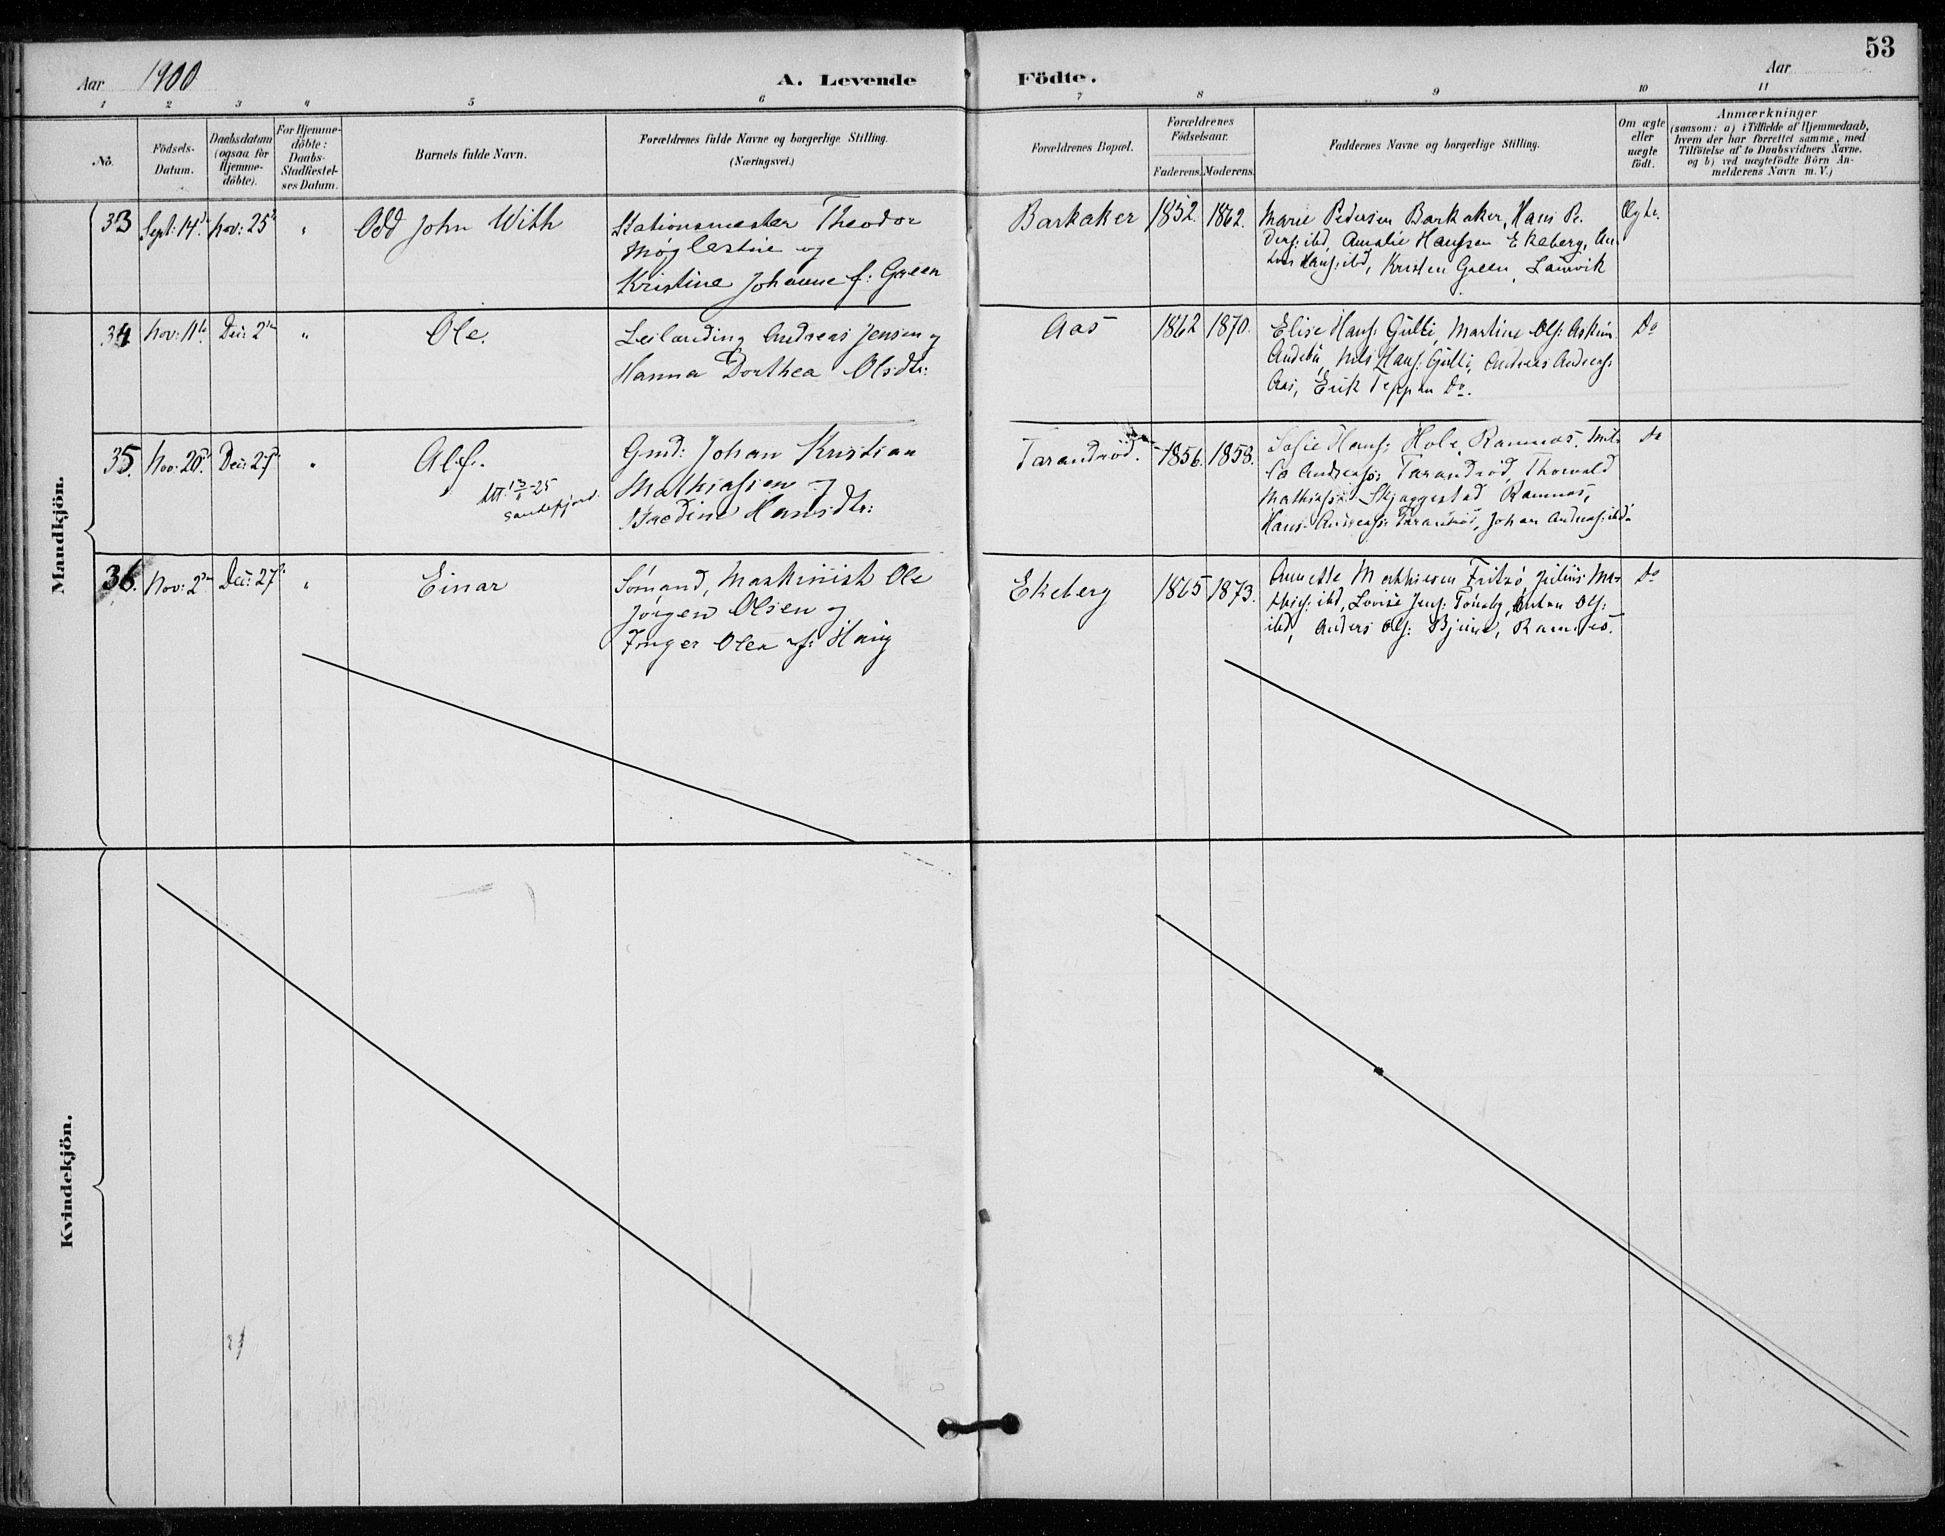 53
Aar 1900 A. Levende Födte. Aar
1 2 3 4 5 6 7 8 9 10 11
No.
Födsels-
Datum.
Daabsdatum
(ogsaa for
Hjemme-
döbte).
For Hjemme-
döbte:
Daabs-
Stadfæstel-
ses Datum.
Barnets fulde Navn.
Forældrenes fulde Navne og borgerlige Stilling.
(Næringsvei.)
Forældrenes Bopæl.
Forældrenes
Födselsaar.
Faderens. Moderens.
Faddernes Navne og borgerlige Stilling.
Om ægte
eller
uægte
födt.
Anmærkninger
(saasom: a) i Tilfælde af Hjemmedaab,
hvem der har forrettet samme, med
Tilföielse af to Daabsvidners Navne.
og b) ved uægtefödte Börn An-
melderens Navn m. V.)
Mandkjön.
33 Sept: 14d Nov: 25 " Odd John With
Stationsmester Theodor
Møglestue og
Kristine Johanne f: Green
Barkaker 1852. 1862.
Marie Pedersen Barkaker, Hans Pe-
ders: ibd, Amalie Hanssen Ekeberg, An-
ton Hans: ibd, Kristen Green, Laurvik
Ægte.
34 Nov: 11te Dec: 2den " Ole.
Leilænding Andreas Jensen og
Hanna Dorthea Olsdtr:
Aas 1862 1870.
Elise Hans: Gulli, Martine Ols: Askim
Andebu, Nils Hans: Gulli, Andreas Andreas:
Aas, Erik Teppen Do.
Do
35. Nov: 20d Dec: 27d " Alf.
utt. 13/1-25
Sandefjord.
Gmd: Johan Kristian
Mathiassen og
Bredine Hansdtr:
Tarandrød. 1856. 1858.
Sofie Hans: Hole, Ramnæs, Mil-
la Andreas: Tarandrød, Thorvald
Mathias: Skjaggestad Ramnæs,
Hans Andreas: Tarandrød, Johan Andreas: ibd.
Do
36. Nov: 2den Dec: 27d " Einar
Sømand, Maskinist Ole
Jörgen Olsen og
Inger Olea f: Haug
Ekeberg 1865 1873.
Annette Mathiesen Fritzö, Julius Ma-
thies: ibd, Lovise Jens: Tönsbg, Anton Ols:
ibd, Anders Ols: Bjune, Ramnæs.
Do
Kvindekjön.